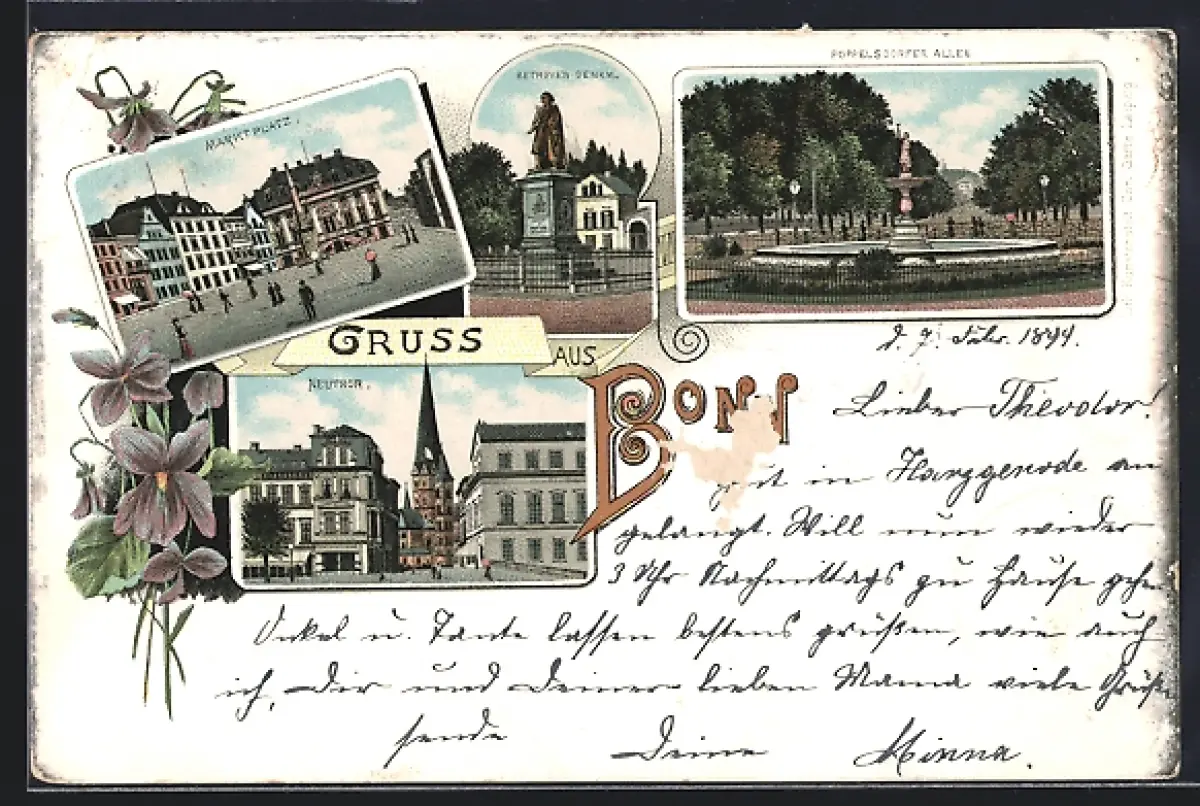 POPPELSDORFER ALLEE
BETHOVEN DENKM.
MARKTPLATZ.
GRUSS
AUS
BONN
NEUTHOR.
d. 7. Febr. 1894.
Lieber Theodor!
gut in Harzgerode an
gelangt. Will nun wieder
3 Uhr Nachmittags zu Hause gehen
Onkel u. Tante lassen bestens grüßen, wie auch
ich, Dir und Deiner lieben Mama viele Grüße
sende
Deine Minna.